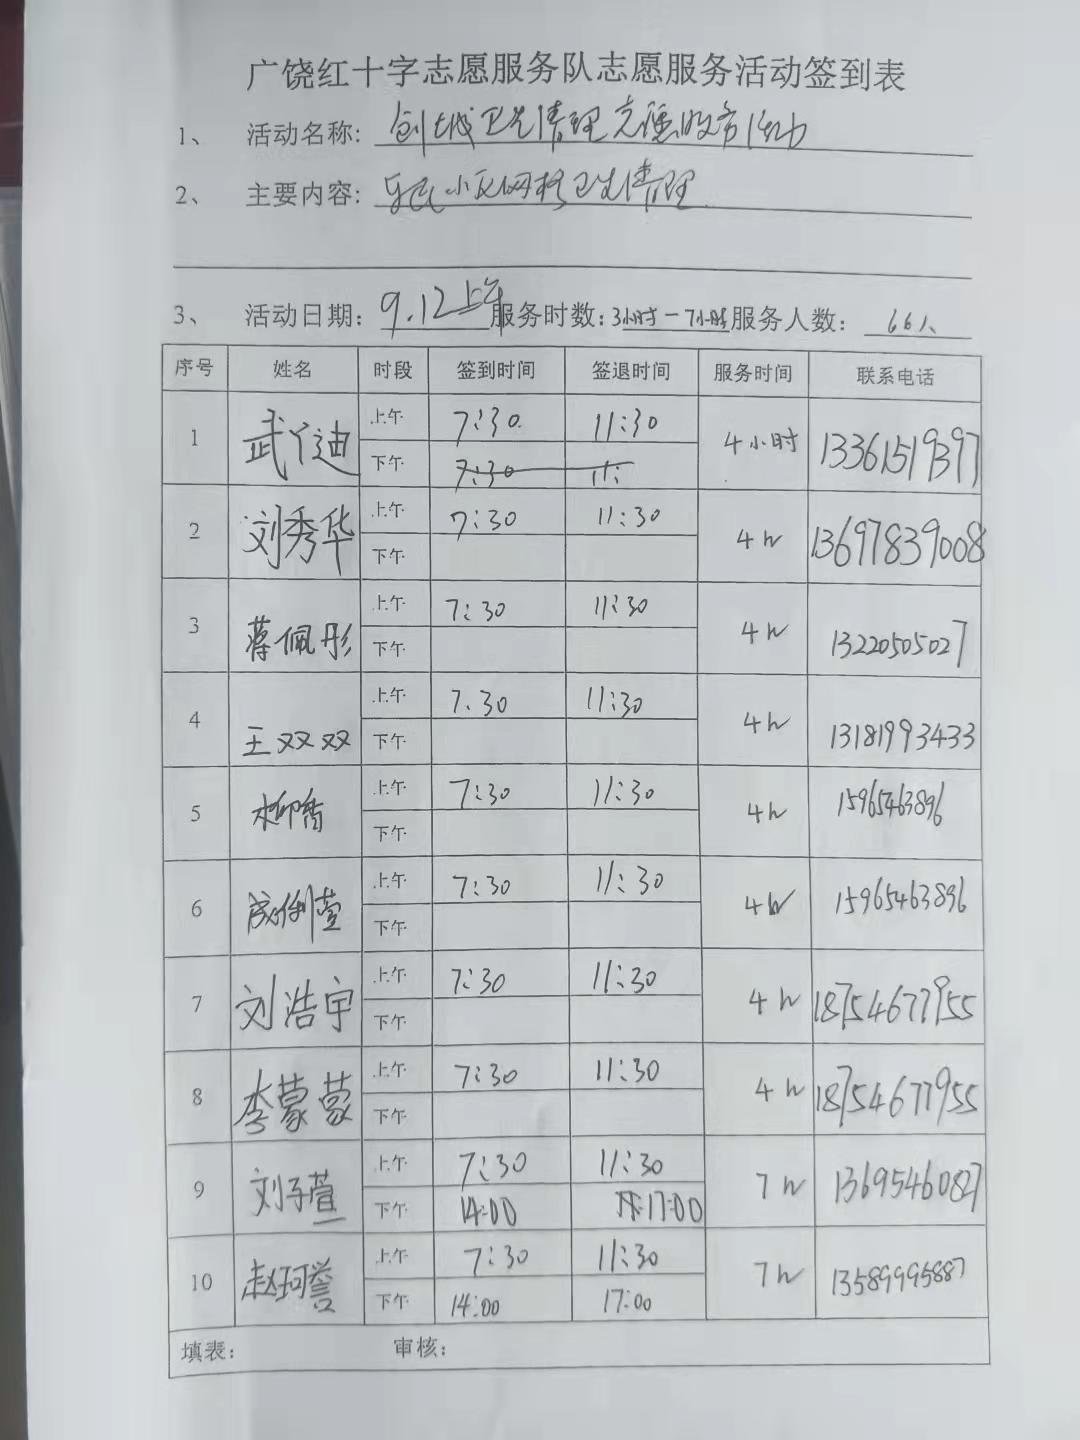 广饶红十字志愿服务队志愿服务活动签到表
1、 活动名称: 创城卫生清理志愿服务活动
2、 主要内容: 乐民小区网格卫生清理
3、 活动日期: 9.12上午 服务时数: 3小时-7小时 服务人数: 66人
序号 姓名 时段 签到时间 签退时间 服务时间 联系电话
1 武丫迪 上午 7:30 11:30 4小时 13361519397
下午 7:30 11:
2 刘秀华 上午 7:30 11:30 4h 13697839008
下午
3 蒋佩彤 上午 7:30 11:30 4h 13220505027
下午
4 王双双 上午 7.30 11:30 4h 13181993433
下午
5 柳香 上午 7:30 11:30 4h 15965463896
下午
6 上午 7:30 11:30 4h 15965463896
下午
7 刘浩宇 上午 7:30 11:30 4h 18754677955
下午
8 李蒙蒙 上午 7:30 11:30 4h 18754677955
下午
9 刘子萱 上午 7:30 11:30 7h 13695460827
下午 14:00 17:00
10 赵珂誉 上午 7:30 11:30 7h 13589995887
下午 14:00 17:00
填表: 审核: